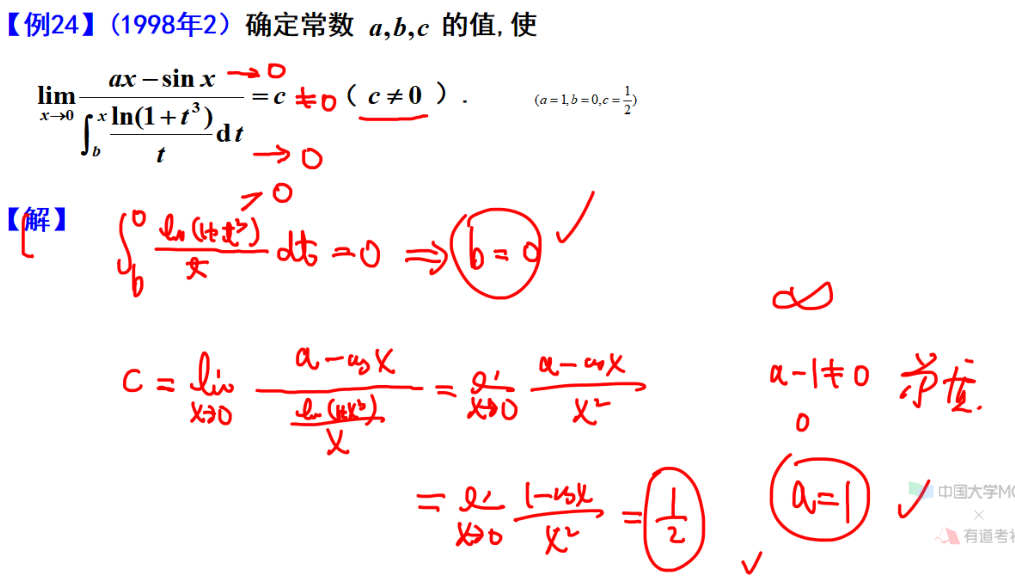 【例24】(1998年2) 确定常数 a,b,c 的值,使
lim x→0 (ax − sin x) / (∫_b^x ln(1+t³)/t dt) = c (c ≠ 0). (a=1,b=0,c=1/2)
→0
≠0
→0
>0
【解】 ∫_b^0 ln(1+t³)/t dt = 0 ⇒ b=0 ✓
∞
C = lim x→0 (a−cosx) / (ln(1+x³)/x) = lim x→0 (a−cosx)/x²
a−1≠0
0
= lim x→0 (1−cosx)/x² = 1/2 ✓
a=1 ✓
中国大学MO
×
有道考